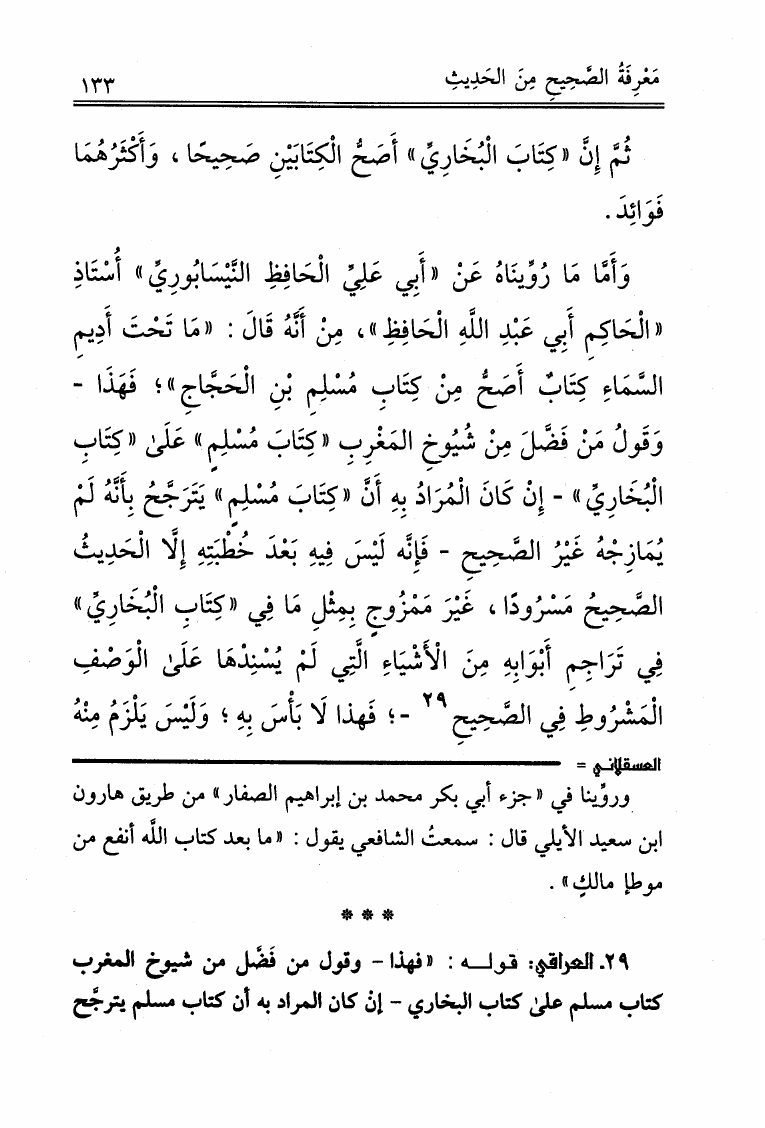 مَعْرِفَةُ الصَّحِيحِ مِنَ الحَدِيثِ ١٣٣
ثُمَّ إِنَّ «كِتَابَ الْبُخَارِيِّ» أَصَحُّ الْكِتَابَيْنِ صَحِيحًا، وَأَكْثَرُهُمَا
فَوَائِدَ.
وَأَمَّا مَا رُوِّينَاهُ عَنْ «أَبِي عَلِيٍّ الْحَافِظِ النَّيْسَابُورِيِّ» أُسْتَاذِ
«الْحَاكِمِ أَبِي عَبْدِ اللَّهِ الْحَافِظِ»، مِنْ أَنَّهُ قَالَ: «مَا تَحْتَ أَدِيمِ
السَّمَاءِ كِتَابٌ أَصَحُّ مِنْ كِتَابِ مُسْلِمِ بْنِ الْحَجَّاجِ»؛ فَهَذَا -
وَقَوْلُ مَنْ فَضَّلَ مِنْ شُيُوخِ المَغْرِبِ «كِتَابَ مُسْلِمٍ» عَلَىٰ «كِتَابِ
الْبُخَارِيِّ» - إِنْ كَانَ الْمُرَادُ بِهِ أَنَّ «كِتَابَ مُسْلِمٍ» يَتَرَجَّحُ بِأَنَّهُ لَمْ
يُمَازِجْهُ غَيْرُ الصَّحِيحِ - فَإِنَّه لَيْسَ فِيهِ بَعْدَ خُطْبَتِهِ إِلَّا الْحَدِيثُ
الصَّحِيحُ مَسْرُودًا، غَيْرَ مَمْزُوجٍ بِمِثْلِ مَا فِي «كِتَابِ الْبُخَارِيِّ»
فِي تَرَاجِمِ أَبْوَابِهِ مِنَ الْأَشْيَاءِ الَّتِي لَمْ يُسْنِدْهَا عَلَىٰ الْوَصْفِ
الْمَشْرُوطِ فِي الصَّحِيحِ ٢٩ -؛ فَهذا لَا بَأْسَ بِهِ؛ وَلَيْسَ يَلْزَمُ مِنْهُ
العسقلاني =
وروِّينا في «جزء أبي بكر محمد بن إبراهيم الصفار» من طريق هارون
ابن سعيد الأيلي قال: سمعتُ الشافعي يقول: «ما بعد كتاب اللَّه أنفع من
موطإ مالكٍ».
* * *
٢٩. العراقي: قولـه: «فهذا - وقول من فَضَّل من شيوخ المغرب
كتاب مسلم علىٰ كتاب البخاري - إنْ كان المراد به أن كتاب مسلم يترجَّح